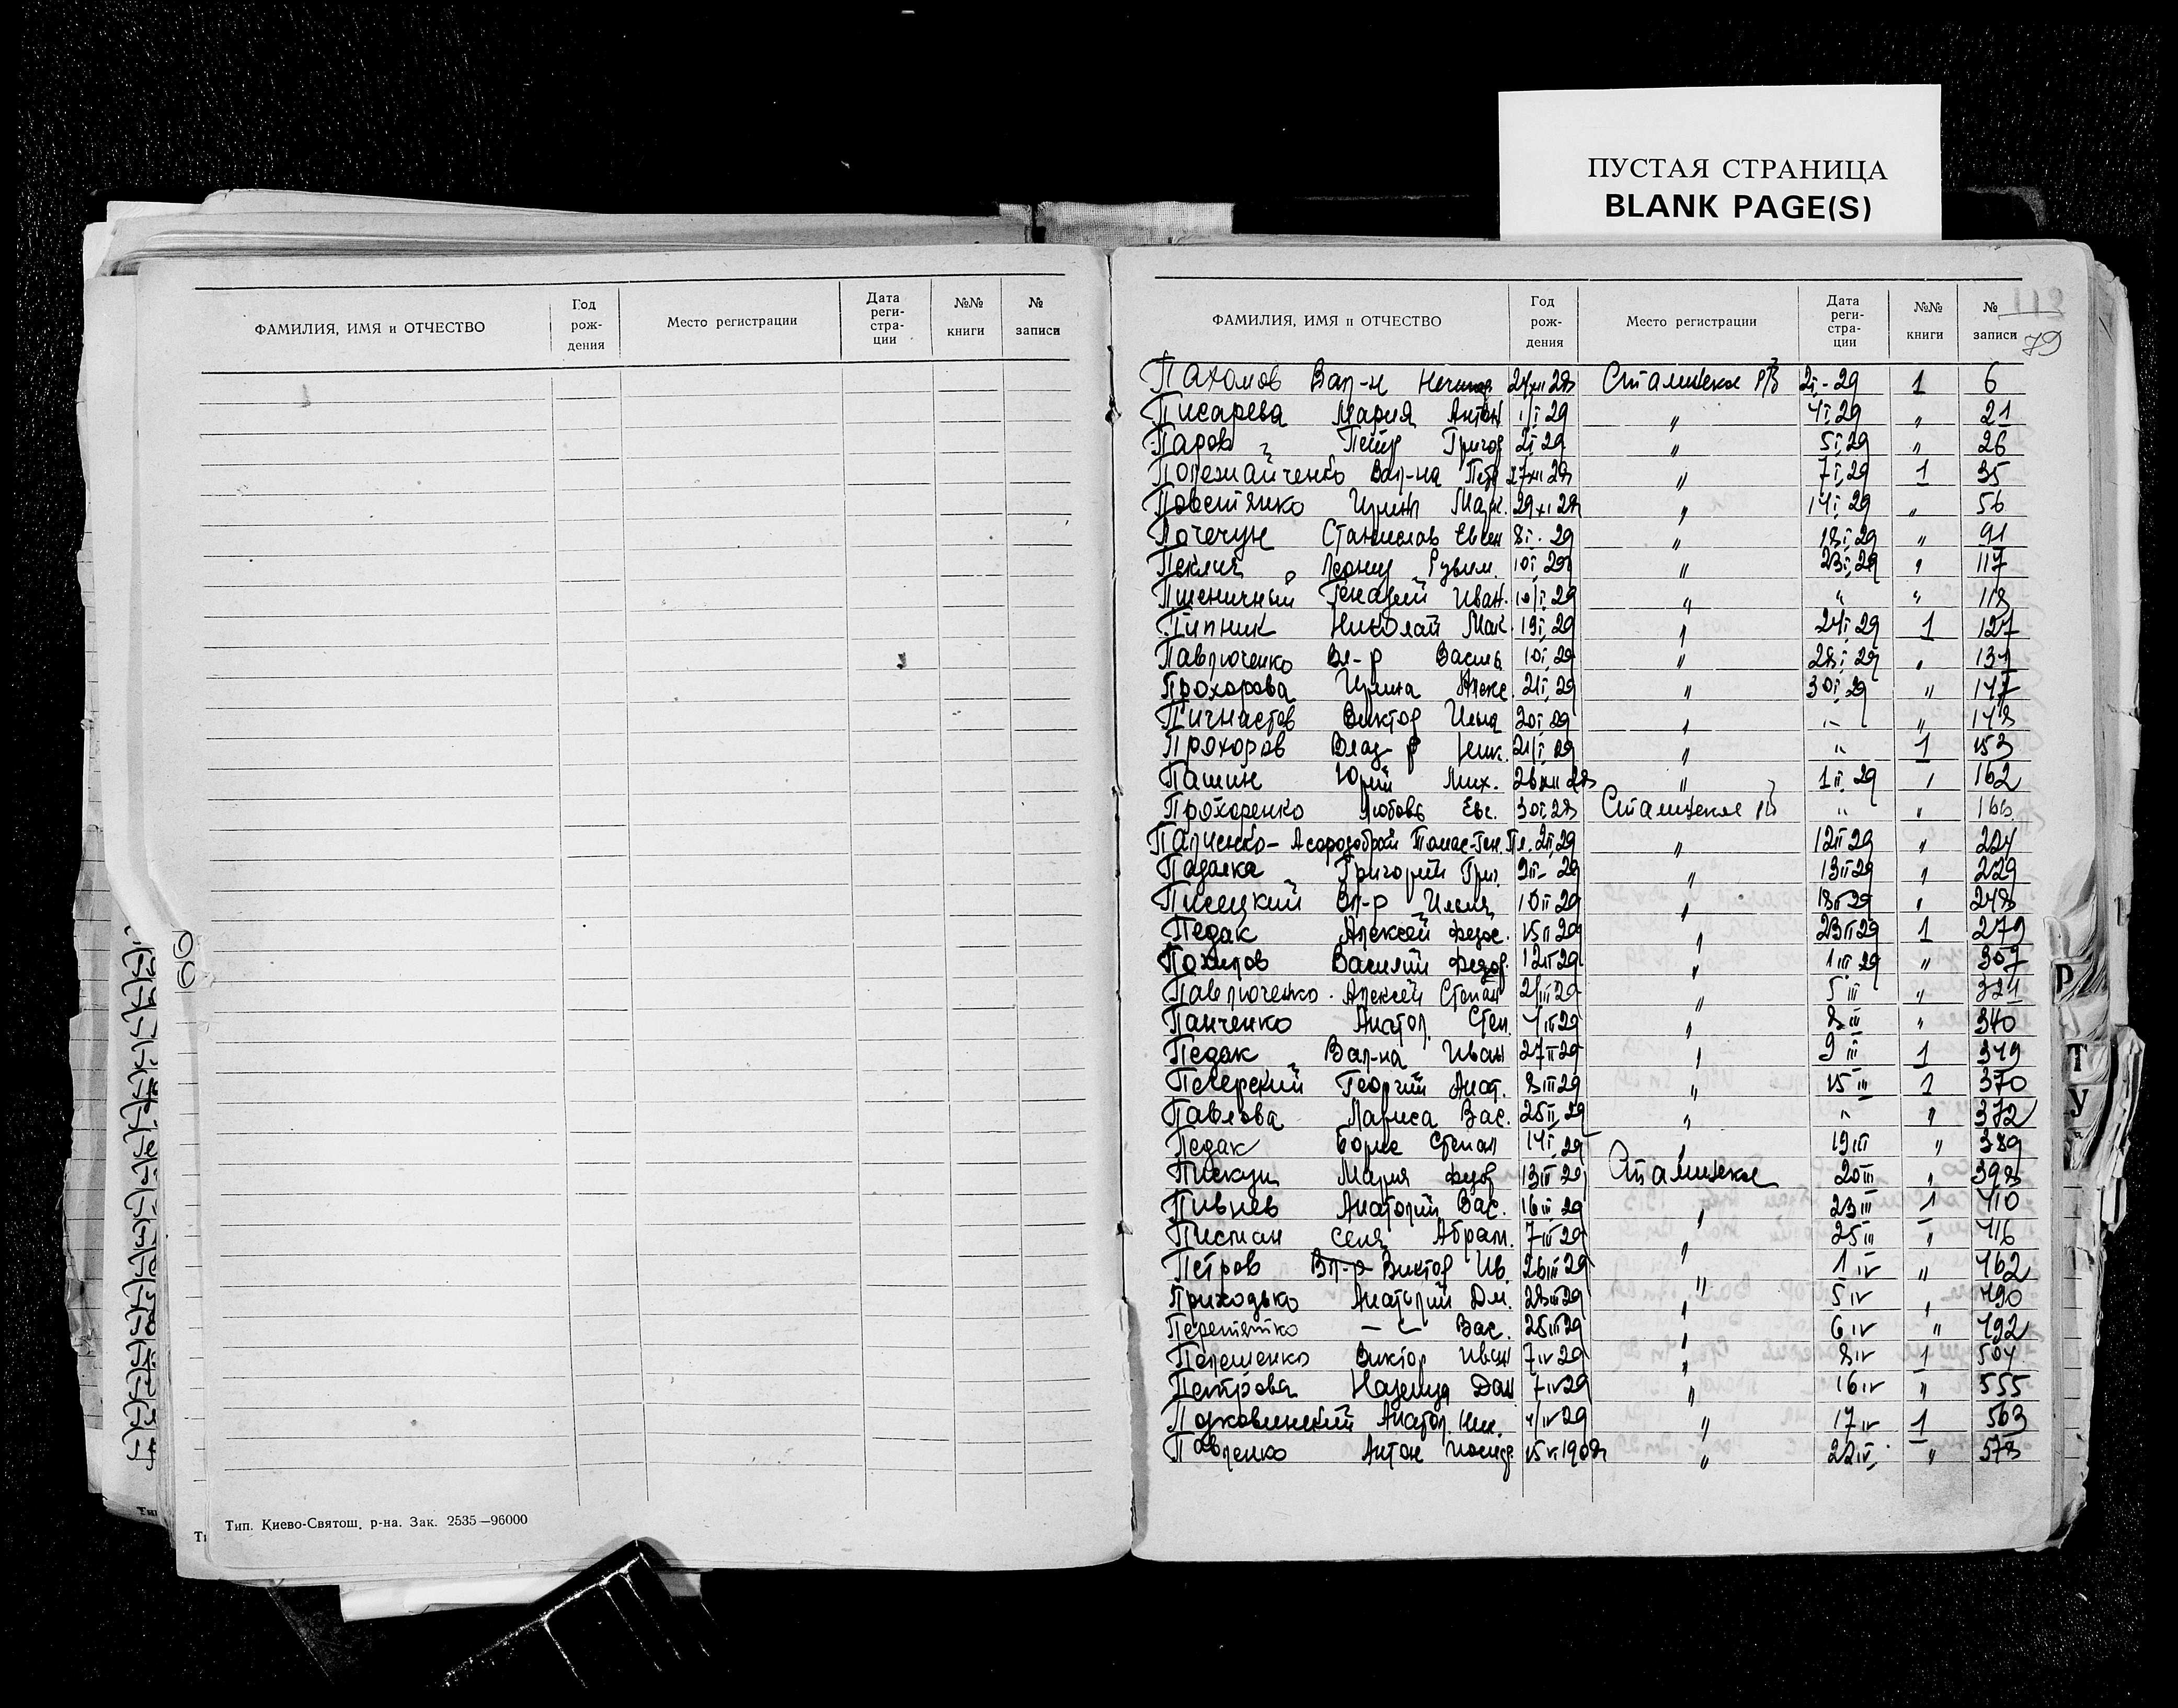 ПУСТАЯ СТРАНИЦА
BLANK PAGE(S)
ФАМИЛИЯ, ИМЯ и ОТЧЕСТВО Год рож-дения Место регистрации Дата реги-стра-ции №№ книги № записи
Тип. Киево-Святош. р-на. Зак. 2535—96000
112
79
ФАМИЛИЯ, ИМЯ и ОТЧЕСТВО Год рож-дения Место регистрации Дата реги-стра-ции №№ книги № записи
Пахомов Вал-н 24 XII 28 Сталинское 2 I - 29 1 6
Писарева Мария Антон 1/I 29 " 4 I 29 " 21
Паров Петр Григор 2 I 29 " 5 I 29 " 26
Вал-на Петр 27 XII 28 " 7 I 29 1 35
Повстянко Ирина Марк. 29 XI 28 " 14 I 29 " 56
Почечун Станислав Евген 8 I. 29 " 18 I 29 " 91
Пеклич Леонид Рувим. 10 I 29 " 23 I 29 " 117
Пшеничный Генадий Иван. 10/I 29 " " " 118
Пипник Николай Мак. 19 I 29 " 24 I 29 1 127
Павлюченко Вл-р Василь 10 I 29 " 28 I 29 " 137
Прохорова Ирина Алекс. 21 I 29 " 30 I 29 " 147
Пичнастов Виктор Ильи 20 I 29 " " " 148
Прохоров Влад-р Ник. 21/I 29 " " 1 153
Пашин Юрий Мих. 26 XII 28 " 1 II 29 " 162
Прохоренко Любовь Евг. 30 I 28 Сталинское " " 166
Палиенко- 2 II 29 " 12 II 29 " 224
Падалка Григорий Григ. 9 II - 29 " 13 II 29 " 229
Писецкий Вл-р Ильич 10 II 29 " 18 II 29 " 248
Педак Алексей Федос. 15 II 29 " 23 II 29 1 279
Василий Федор. 12 II 29 " 1 III 29 " 307
Павлюченко Алексей Степан 2/III 29 " 5 III " 321
Панченко Анатол. Степ. 4 III 29 " 8 III " 340
Педак Вал-на Иван 27 II 29 " 9 III 1 349
Печерский Георгий Анат. 8 III 29 " 15 III 1 370
Павлова Лариса Вас. 25 II 29 " " " 372
Педак Борис Степан 14 I 29 " 19 III " 389
Пискун Мария Федор 13 III 29 Сталинское 20 III " 398
Пивнев Анатолий Вас. 16 III 29 " 23 III 1 410
Писман Сеня Абрам. 7 III 29 " 25 III " 416
Петров Вл-р Виктор Ив. 26 III 29 " 1 IV " 462
Приходько Анатолий Дм. 28 III 29 " 5 IV " 490
Перетятко — " — Вас. 25 III 29 " 6 IV " 492
Пелешенко Виктор Иван 7 IV 29 " 8 IV 1 504
Петрова Надежда Дан 7 IV 29 " 16 IV " 555
Подковинский Анатол. Ник. 4/IV 29 " 17 IV 1 563
Павленко Антон 15 VI 1908 " 22 IV. " 578
Р
Т
У